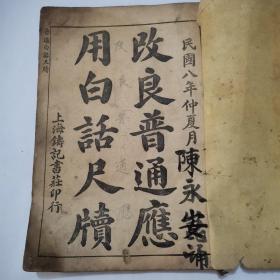 民國八年仲夏月
陳永
誦
改良普通應
用白話尺牘
上海鑄記書莊印行